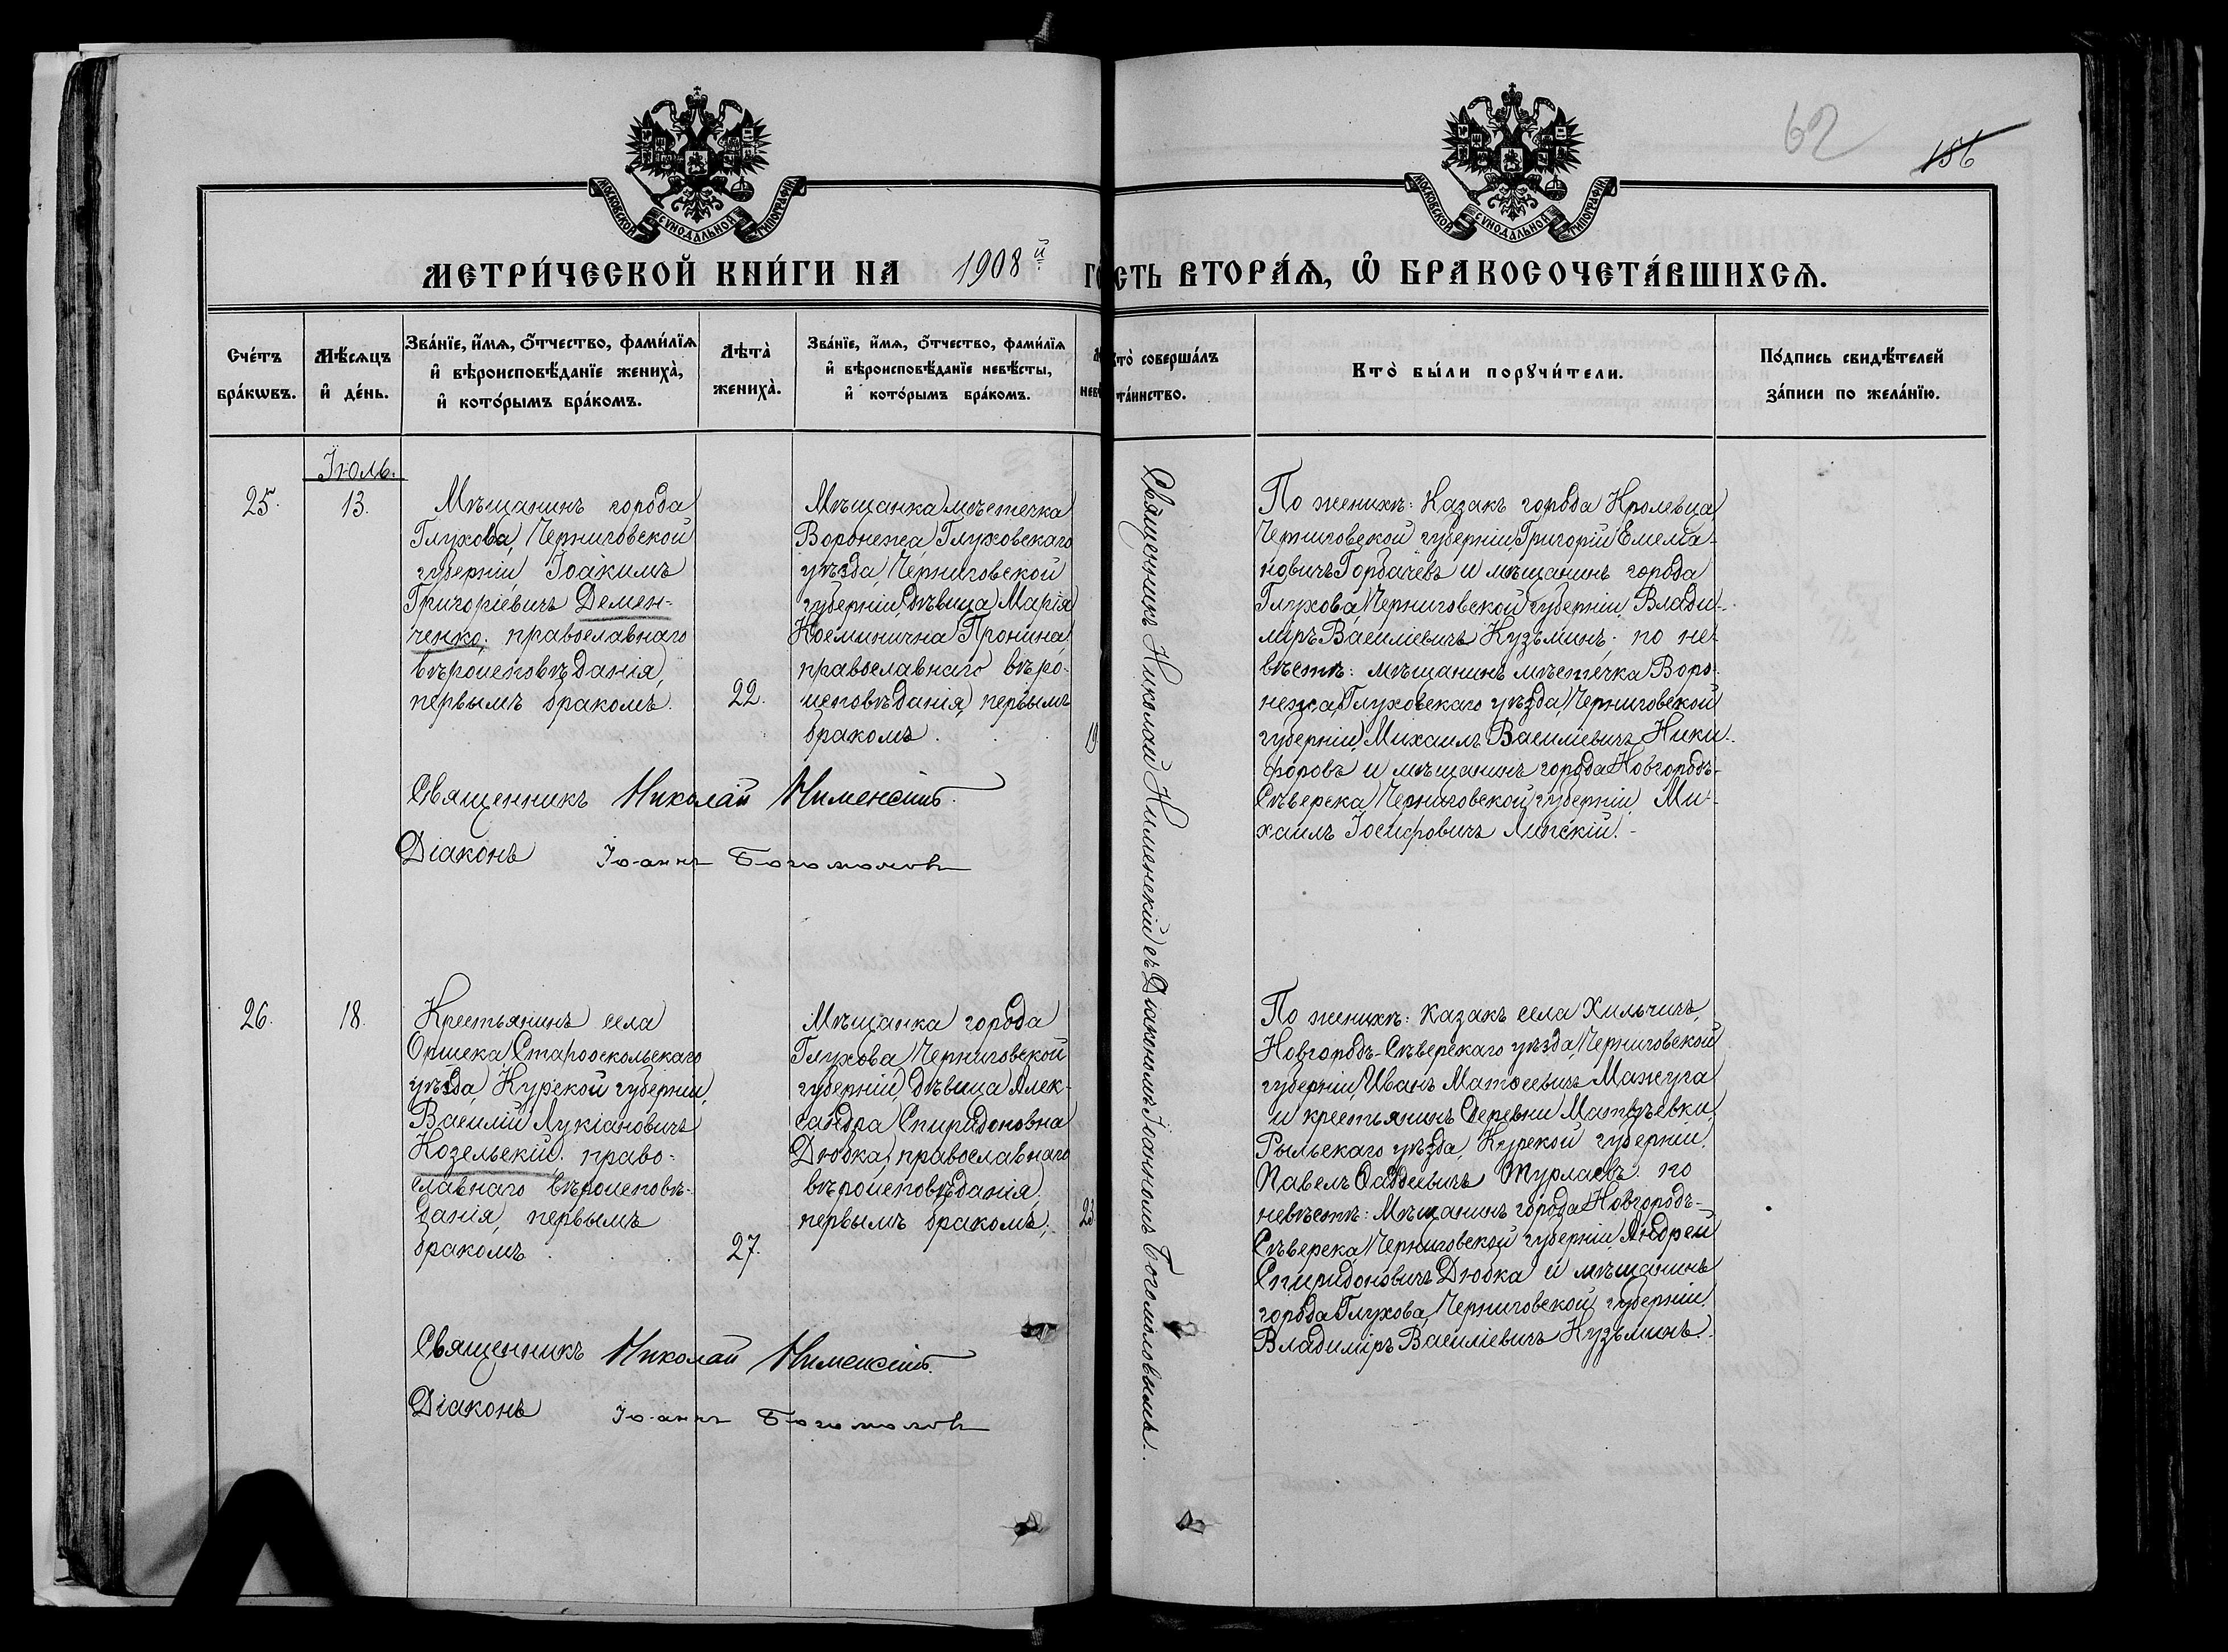 62
156
МОСКОВСКОЙ СУНОДАЛЬНОЙ ТИПОГРАФІИ
МОСКОВСКОЙ СУНОДАЛЬНОЙ ТИПОГРАФІИ
МЕТРИ́ЧЕСКОЙ КНИ́ГИ НА 1908й
СТЬ ВТОРА́Ѧ, Ѽ БРАКОСОЧЕТА́ВШИХСѦ.
Сче́тъ бра́кѡвъ.
Мѣ́сѧцъ и҆ де́нь.
Зва́нїе, и҆́мѧ, ѻ҆́тчество, фами́лїѧ
и҆ вѣроисповѣ́данїе жениха̀,
и҆ кото́рымъ бра́комъ.
Лѣта̀ жениха̀.
Зва́нїе, и҆́мѧ, ѻ҆́тчество, фами́лїѧ
и҆ вѣроисповѣ́данїе невѣ́сты,
и҆ кото́рымъ бра́комъ.
Кто̀ соверша́лъ
та́инство.
Кто̀ бы́ли порꙋчи́тели.
По́дпись свидѣ́телей
за́писи по жела́нїю.
Іюль.
25.
13.
Мѣщанинъ города
Глухова, Черниговской
губерніи, Іоакимъ
Григоріевичъ Демен-
ченко, православнаго
вѣроисповѣданія,
первымъ бракомъ.
22.
Мѣщанка мѣстечка
Воронежа, Глуховскаго
уѣзда, Черниговской
губерніи, дѣвица Марія
Косминична Пронина,
православнаго вѣро-
исповѣданія, первымъ
бракомъ.
19
Священникъ Николай Нименскій съ Діакономъ Іоанномъ Богомоловымъ.
По женихѣ: Казакъ города Кролевца,
Черниговской губерніи, Григорій Емелiа-
новичъ Горбачевъ и мѣщанинъ города
Глухова, Черниговской губерніи, Влади-
міръ Василіевичъ Кузьминъ; по не-
вѣстѣ: мѣщанинъ мѣстечка Воро-
нежа, Глуховскаго уѣзда, Черниговской
губерніи, Михаилъ Василіевичъ Ники-
форовъ и мѣщанинъ города Новгородъ-
Сѣверска, Черниговской губерніи, Ми-
хаилъ Іосифовичъ Липскій.
Священникъ Николай Нименскій.
Діаконъ Іоаннъ Богомоловъ
26.
18.
Крестьянинъ села
Оршека, Старооскольскаго
уѣзда, Курской губерніи,
Василій Лукіановичъ
Козельскій, право-
славнаго вѣроисповѣ-
данія, первымъ
бракомъ.
27.
Мѣщанка города
Глухова, Черниговской
губерніи, дѣвица Алек-
сандра Спиридоновна
Дюбка, православнаго
вѣроисповѣданія,
первымъ бракомъ.
23
По женихѣ: казакъ села Хильчичъ,
Новгородъ-Сѣверскаго уѣзда, Черниговской
губерніи, Иванъ Матѳеевичъ Мажуга
и крестьянинъ деревни Матвѣевки,
Рыльскаго уѣзда, Курской губерніи,
Павелъ Ѳаддеевичъ Журлаевъ; по
невѣстѣ: Мѣщанинъ города Новгородъ-
Сѣверска, Черниговской губерніи, Андрей
Спиридоновичъ Дюбка и мѣщанинъ
города Глухова, Черниговской губерніи,
Владиміръ Василіевичъ Кузьминъ.
Священникъ Николай Нименскій.
Діаконъ Іоаннъ Богомоловъ